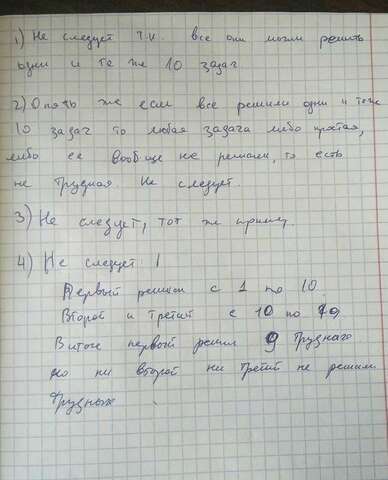 1) Не следует т.к. все они могли решить
одни и те же 10 задач.
2) Опять же если все решили одни и те же
10 задач то любая задача либо простая,
либо ее вообще не решили, то есть
не трудная. Не следует.
3) Не следует, тот же пример.
4) Не следует!
Первый решил с 1 по 10.
Второй и третий с 10 по 19
В итоге первый решил 9 трудных
но ни второй ни третий не решили
трудных